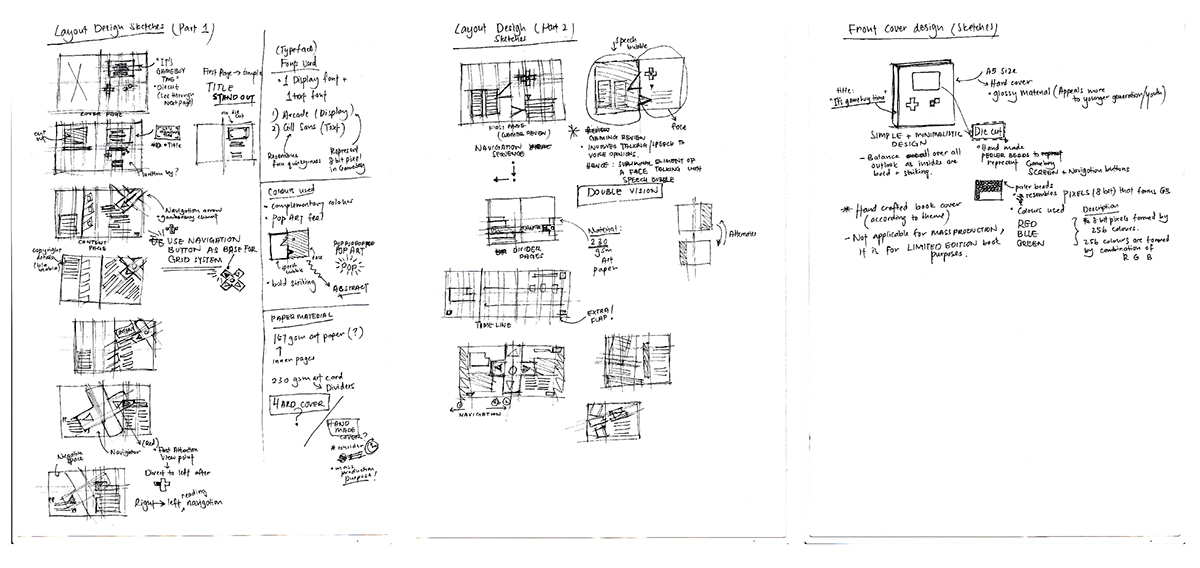 Layout Design Sketches (Part 1)
"IT'S
GAMEBOY
TAG"
• Diecut
(see through
Next page)
First Page → Simple
TITLE
STAND OUT
COVER PAGE
no die
cut
• Title
written by?
Navigation arrow
CONTENT
PAGE
USE NAVIGATION
BUTTON AS BASE FOR
GRID SYSTEM
copyright
details
Navigator
(Red)
• First Attention
View point
Direct to left after
Negative
space
Right → left reading
navigation
(Typeface)
Fonts Used
• 1 Display font +
1 text font
1) Arcade (Display)
2) Gill Sans (Text)
Resembles
Represent
8 bit pixel
in Gameboy
Colours used
- complementary colours
• Pop ART feel
speech
bubble
face
POP ART
"POP"
• bold striking
ABSTRACT
PAPER MATERIAL
157 gsm art paper (?)
inner pages
230 gsm art card
Dividers
HARD COVER
?
HAND
MADE
COVER?
* consider
• mass
production
purpose!
Layout Design (Part 2)
Sketches
speech
bubble
FIRST PAGE
(GAMING REVIEW)
NAVIGATION
SEQUENCE
face
GAMING REVIEW
• INVOLVES TALKING/SPEECH TO
VOICE OPINIONS.
HENCE: SUBLIMINAL ELEMENT OF
A FACE TALKING WITH
SPEECH BUBBLE
DOUBLE VISION
DIVIDER
PAGES
Material:
230
gsm
Art
paper
Alternate
TIMELINE
EXTRA/
FLAP.
NAVIGATION
Front Cover design (Sketches)
Title:
"It's gameboy time"
A5 size
• Hard cover
• glossy Material (Appeals more
to younger generation/youths)
SIMPLE + MINIMALISTIC
DESIGN
- Balance over all
outlook as insides are
bold + striking.
Die cut
• Hand made
PERLER BEADS to
represent Gameboy
SCREEN + Navigation buttons
perler beads
resembles PIXELS (8 bit) that forms GB
* Hand crafted book cover
(according to theme)
- Not applicable for MASS PRODUCTION,
it is for LIMITED EDITION book
purposes.
• Colours used
RED
BLUE
GREEN
Description
8 bit pixels formed by
256 colours.
256 colours are formed
by combination of
R G B